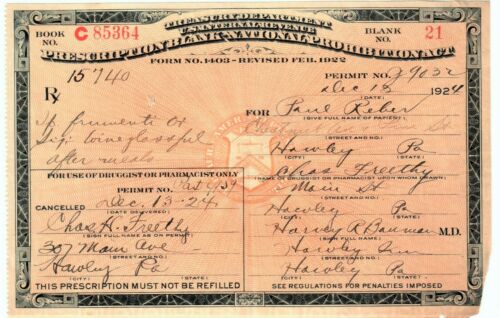 TREASURY DEPARTMENT
U.S. INTERNAL REVENUE
BOOK NO. C 85364
BLANK NO. 21
PRESCRIPTION BLANK-NATIONAL PROHIBITION ACT
FORM NO. 1403 - REVISED FEB. 1922
15740
PERMIT NO.
Dec 13 1924
(DATE)
Rx
FOR Paul Reber
(GIVE FULL NAME OF PATIENT)
Sp frumenti
Chestnut St
(STREET AND NO.)
Sig: wineglassful
Hawley Pa
(CITY) (STATE)
after meals
Chas Freethy
FOR USE OF DRUGGIST OR PHARMACIST ONLY
(NAME OF DRUGGIST OR PHARMACIST UPON WHOM DRAWN)
PERMIT NO.
Main St
(STREET AND NO.)
CANCELLED Dec. 13-24
(DATE DELIVERED)
Hawley Pa
(CITY) (STATE)
Chas. H. Freethy
(SIGN FULL NAME AS ON PERMIT)
Harvey R Bauman M.D.
(SIGN FULL NAME)
307 Main Ave
(STREET AND NO.)
Hawley
(STREET AND NO.)
Hawley Pa
(CITY) (STATE)
Hawley Pa
(CITY) (STATE)
THIS PRESCRIPTION MUST NOT BE REFILLED
SEE REGULATIONS FOR PENALTIES IMPOSED